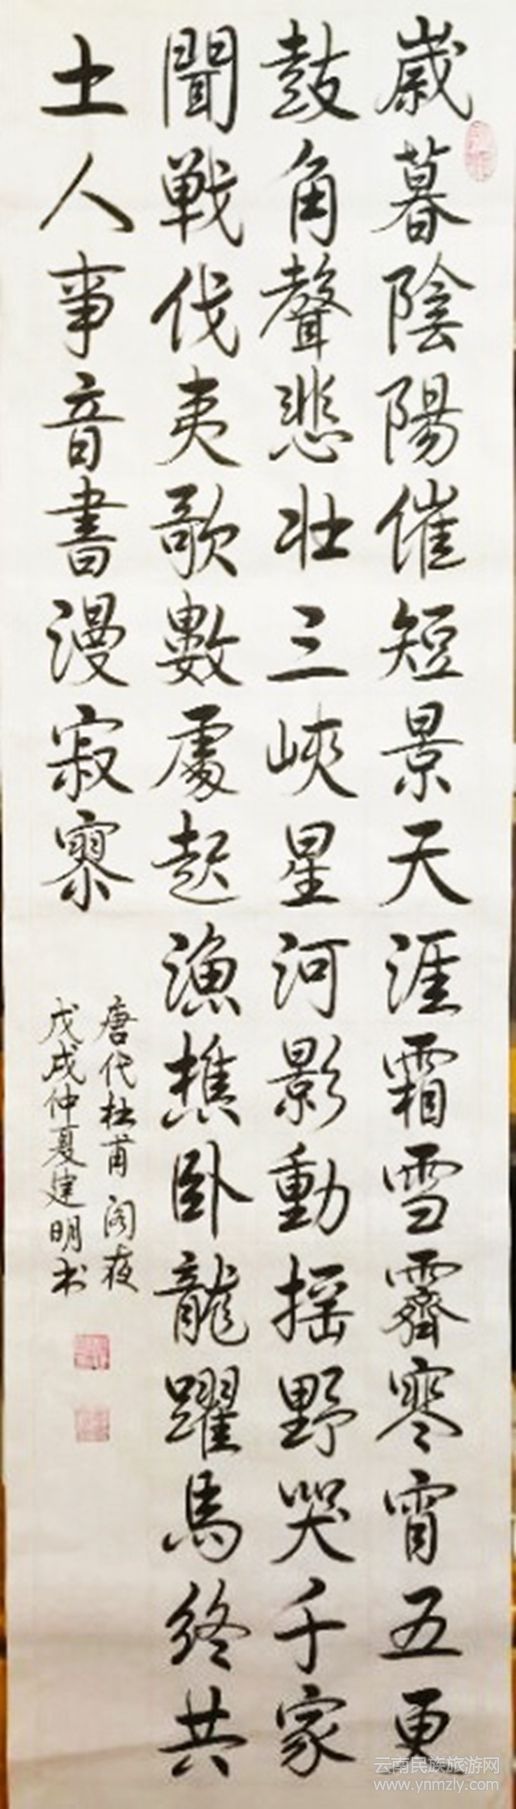 歲暮陰陽催短景天涯霜雪霽寒宵五更
鼓角聲悲壯三峽星河影動搖野哭千家
聞戦伐夷歌數處起漁樵卧龍躍馬終共
土人事音書漫寂寥
唐代杜甫 阁夜
戊戌仲夏建明书
云南民族旅游网
www.ynmzly.com